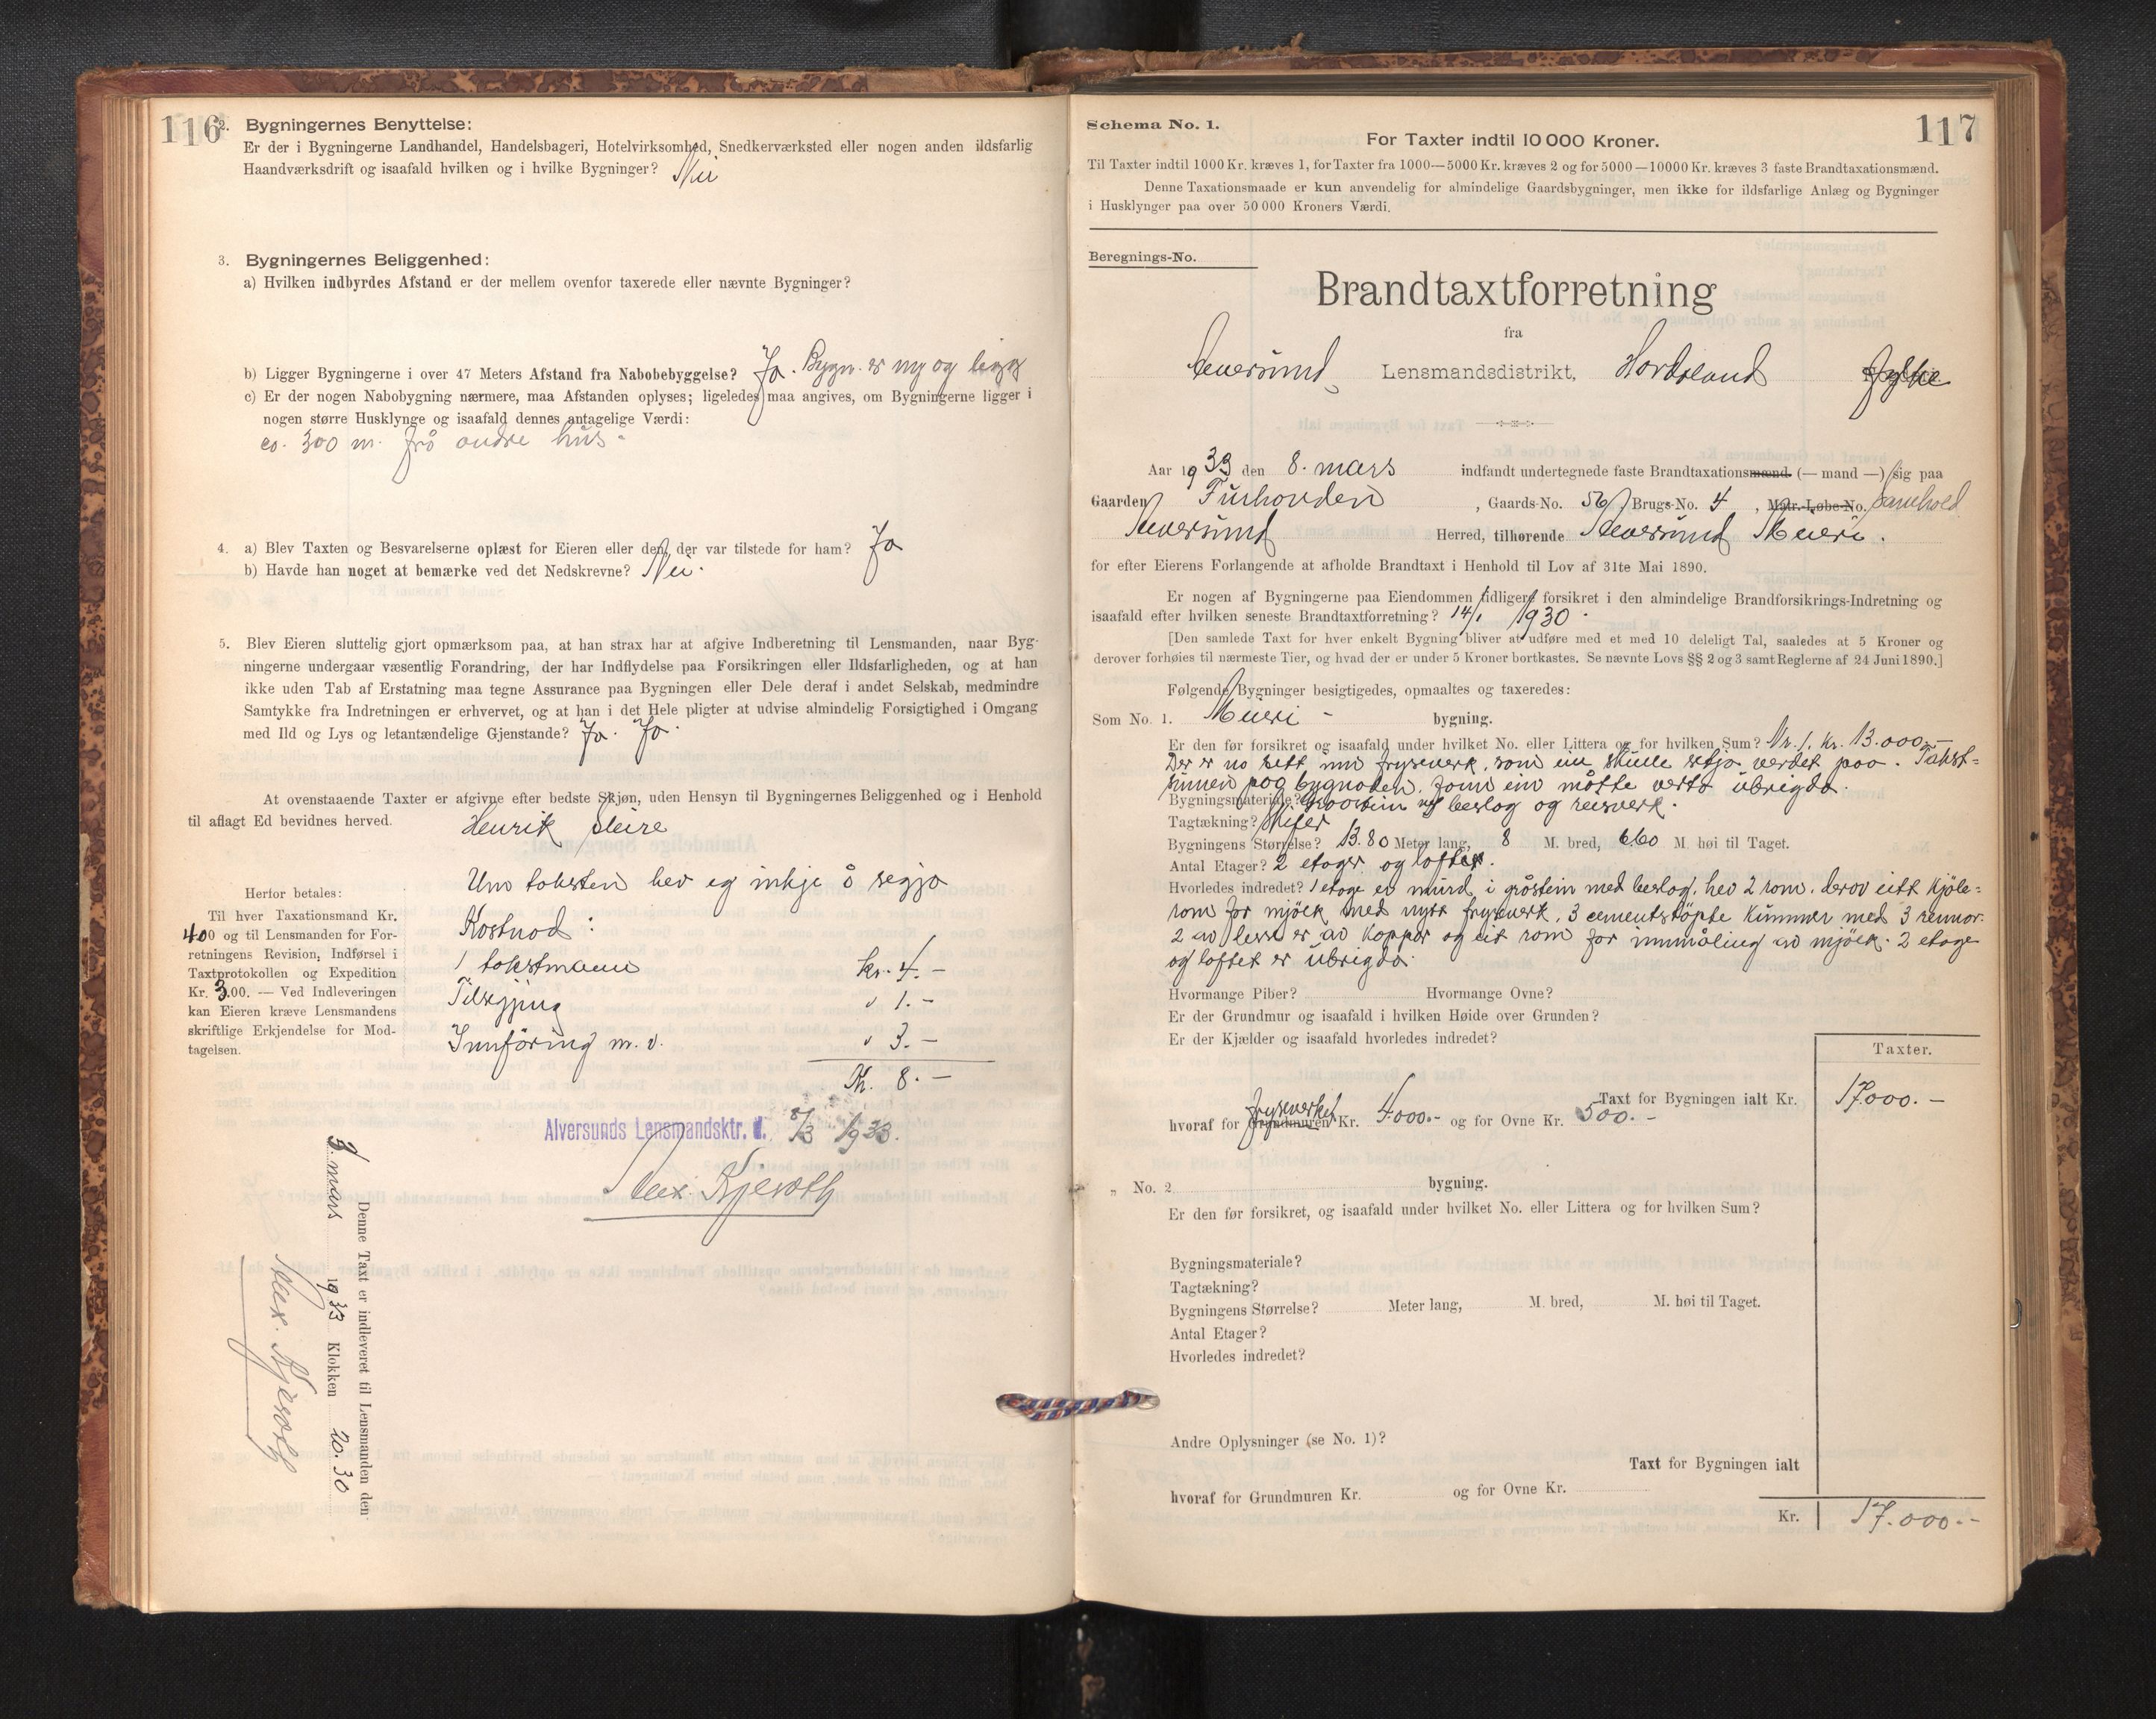 116
2. Bygningernes Benyttelse:
Er der i Bygningerne Landhandel, Handelsbageri, Hotelvirksomhed, Snedkerværksted eller nogen anden ildsfarlig
Haandværksdrift og isaafald hvilken og i hvilke Bygninger? Nei
3. Bygningernes Beliggenhed:
a) Hvilken indbyrdes Afstand er der mellem ovenfor taxerede eller nævnte Bygninger?
b) Ligger Bygningerne i over 47 Meters Afstand fra Nabobebyggelse? Ja. Bygn. er ny og ligg
c) Er der nogen Nabobygning nærmere, maa Afstanden oplyses; ligeledes maa angives, om Bygningerne ligger i
nogen større Husklynge og isaafald dennes antagelige Værdi:
ca. 300 m. frå andre hus.
4. a) Blev Taxten og Besvarelserne oplæst for Eieren eller den, der var tilstede for ham? Ja
b) Havde han noget at bemærke ved det Nedskrevne? Nei.
5. Blev Eieren sluttelig gjort opmærksom paa, at han strax har at afgive Indberetning til Lensmanden, naar Byg-
ningerne undergaar væsentlig Forandring, der har Indflydelse paa Forsikringen eller Ildsfarligheden, og at han
ikke uden Tab af Erstatning maa tegne Assurance paa Bygningen eller Dele deraf i andet Selskab, medmindre
Samtykke fra Indretningen er erhvervet, og at han i det Hele pligter at udvise almindelig Forsigtighed i Omgang
med Ild og Lys og letantændelige Gjenstande? Ja. Ja.
At ovenstaaende Taxter er afgivne efter bedste Skjøn, uden Hensyn til Bygningernes Beliggenhed og i Henhold
til aflagt Ed bevidnes herved.
Henrik Seire
Um taksten hev eg inkje å segja
Herfor betales:
Til hver Taxationsmand Kr.
4.00 og til Lensmanden for For-
retningens Revision, Indførsel i
Taxtprotokollen og Expedition
Kr. 3.00. — Ved Indleveringen
kan Eieren kræve Lensmandens
skriftlige Erkjendelse for Mod-
tagelsen.
Kostnad:
1 takstmann kr. 4.-
Tilsegjing " 1.-
Innføring m. v. " 3.-
Kr. 8.-
Alversunds Lensmandsktr. d. 8/3 1933.
Alex. Kjeroth
Denne Taxt er indleveret til Lensmanden den
9. mars 1933 Klokken 20.30
Alex. Kjeroth
117
Schema No. 1.
For Taxter indtil 10 000 Kroner.
Til Taxter indtil 1000 Kr. kræves 1, for Taxter fra 1000—5000 Kr. kræves 2 og for 5000—10000 Kr. kræves 3 faste Brandtaxationsmænd.
Denne Taxationsmaade er kun anvendelig for almindelige Gaardsbygninger, men ikke for ildsfarlige Anlæg og Bygninger
i Husklynger paa over 50 000 Kroners Værdi.
Beregnings-No.
Brandtaxtforretning
fra
Alversund Lensmandsdistrikt, Hordaland fylke
Aar 1933 den 8. mars indfandt undertegnede faste Brandtaxationsmænd (— mand —) sig paa
Gaarden Furhovden, Gaards-No. 56, Brugs-No. 4, Matr.-Løbe-No.
Alversund Herred, tilhørende Alversund Meieri.
for efter Eierens Forlangende at afholde Brandtaxt i Henhold til Lov af 31te Mai 1890.
Er nogen af Bygningerne paa Eiendommen tidligere forsikret i den almindelige Brandforsikrings-Indretning og
isaafald efter hvilken seneste Brandtaxtforretning? 14/1 1930.
[Den samlede Taxt for hver enkelt Bygning bliver at udføre med et med 10 deleligt Tal, saaledes at 5 Kroner og
derover forhøies til nærmeste Tier, og hvad der er under 5 Kroner bortkastes. Se nævnte Lovs §§ 2 og 3 samt Reglerne af 24 Juni 1890.]
Følgende Bygninger besigtigedes, opmaaltes og taxeredes:
Som No. 1. Meieri - bygning.
Er den før forsikret og isaafald under hvilket No. eller Littera og for hvilken Sum? Nr. 1. Kr. 13.000.-
Der er no sett inn fryseverk, som ein skulle setja verdet paa. Takst-
sumen paa bygnaden, fann ein måtte verta übrigda.
Bygningsmateriale? Graastein m/ beslag og reisverk.
Tagtækning? Skifer
Bygningens Størrelse? 13.80 Meter lang, 8 M. bred, 6.60 M. høi til Taget.
Antal Etager? 2 etager og loftet.
Hvorledes indredet? 1 etage er murd i gråstein med beslag, hev 2 rom, derav eitt kjöle-
rom for mjölk med nytt fryseverk, 3 cementstöpte kummer med 3 rennor.
2 av desse er av koppar og eit rom for innmåling av mjölk. 2 etage
og loftet er übrigda.
Hvormange Piber? Hvormange Ovne?
Er der Grundmur og isaafald i hvilken Høide over Grunden?
Er der Kjælder og isaafald hvorledes indredet?
Taxter.
Taxt for Bygningen ialt Kr. 17.000.-
hvoraf for Grundmuren fryseverket Kr. 4.000.- og for Ovne Kr. 500.-
„ No. 2 bygning.
Er den før forsikret, og isaafald under hvilket No. eller Littera og for hvilken Sum?
Bygningsmateriale?
Tagtækning?
Bygningens Størrelse? Meter lang, M. bred, M. høi til Taget.
Antal Etager?
Hvorledes indredet?
Andre Oplysninger (se No. 1)?
Taxt for Bygningen ialt
hvoraf for Grundmuren Kr. og for Ovne Kr.
Kr. 17.000.-